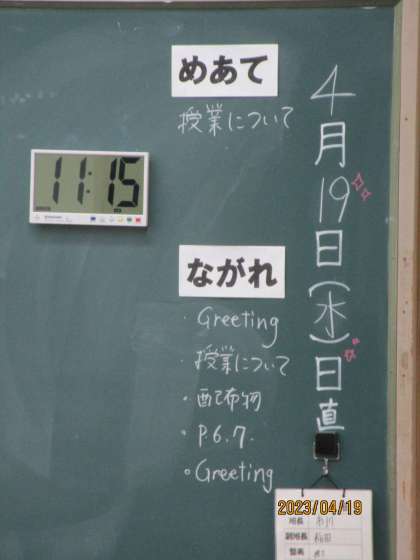 4月19日(水)日直
めあて
授業について
11:15
ながれ
・Greeting
・授業について
・配布物
・P.6.7.
・Greeting
班長
副班長
2023/04/19